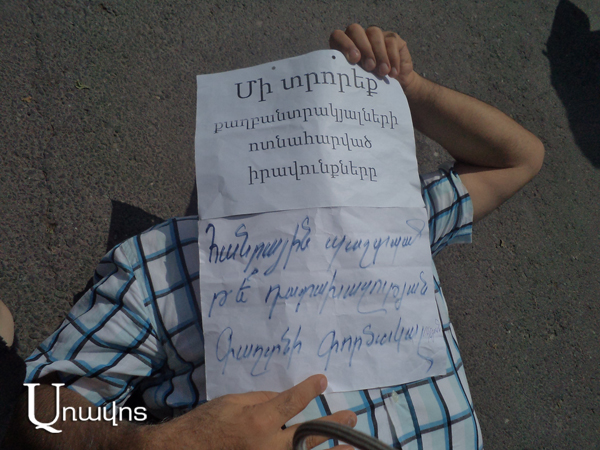 Մի տրորեք
քաղբանտրակյալների
ոտնահարված
իրավունքները
Հանրային պաշտպան
թե՞ դատախազության
Գաղտնի գործակալ
Առավոտ